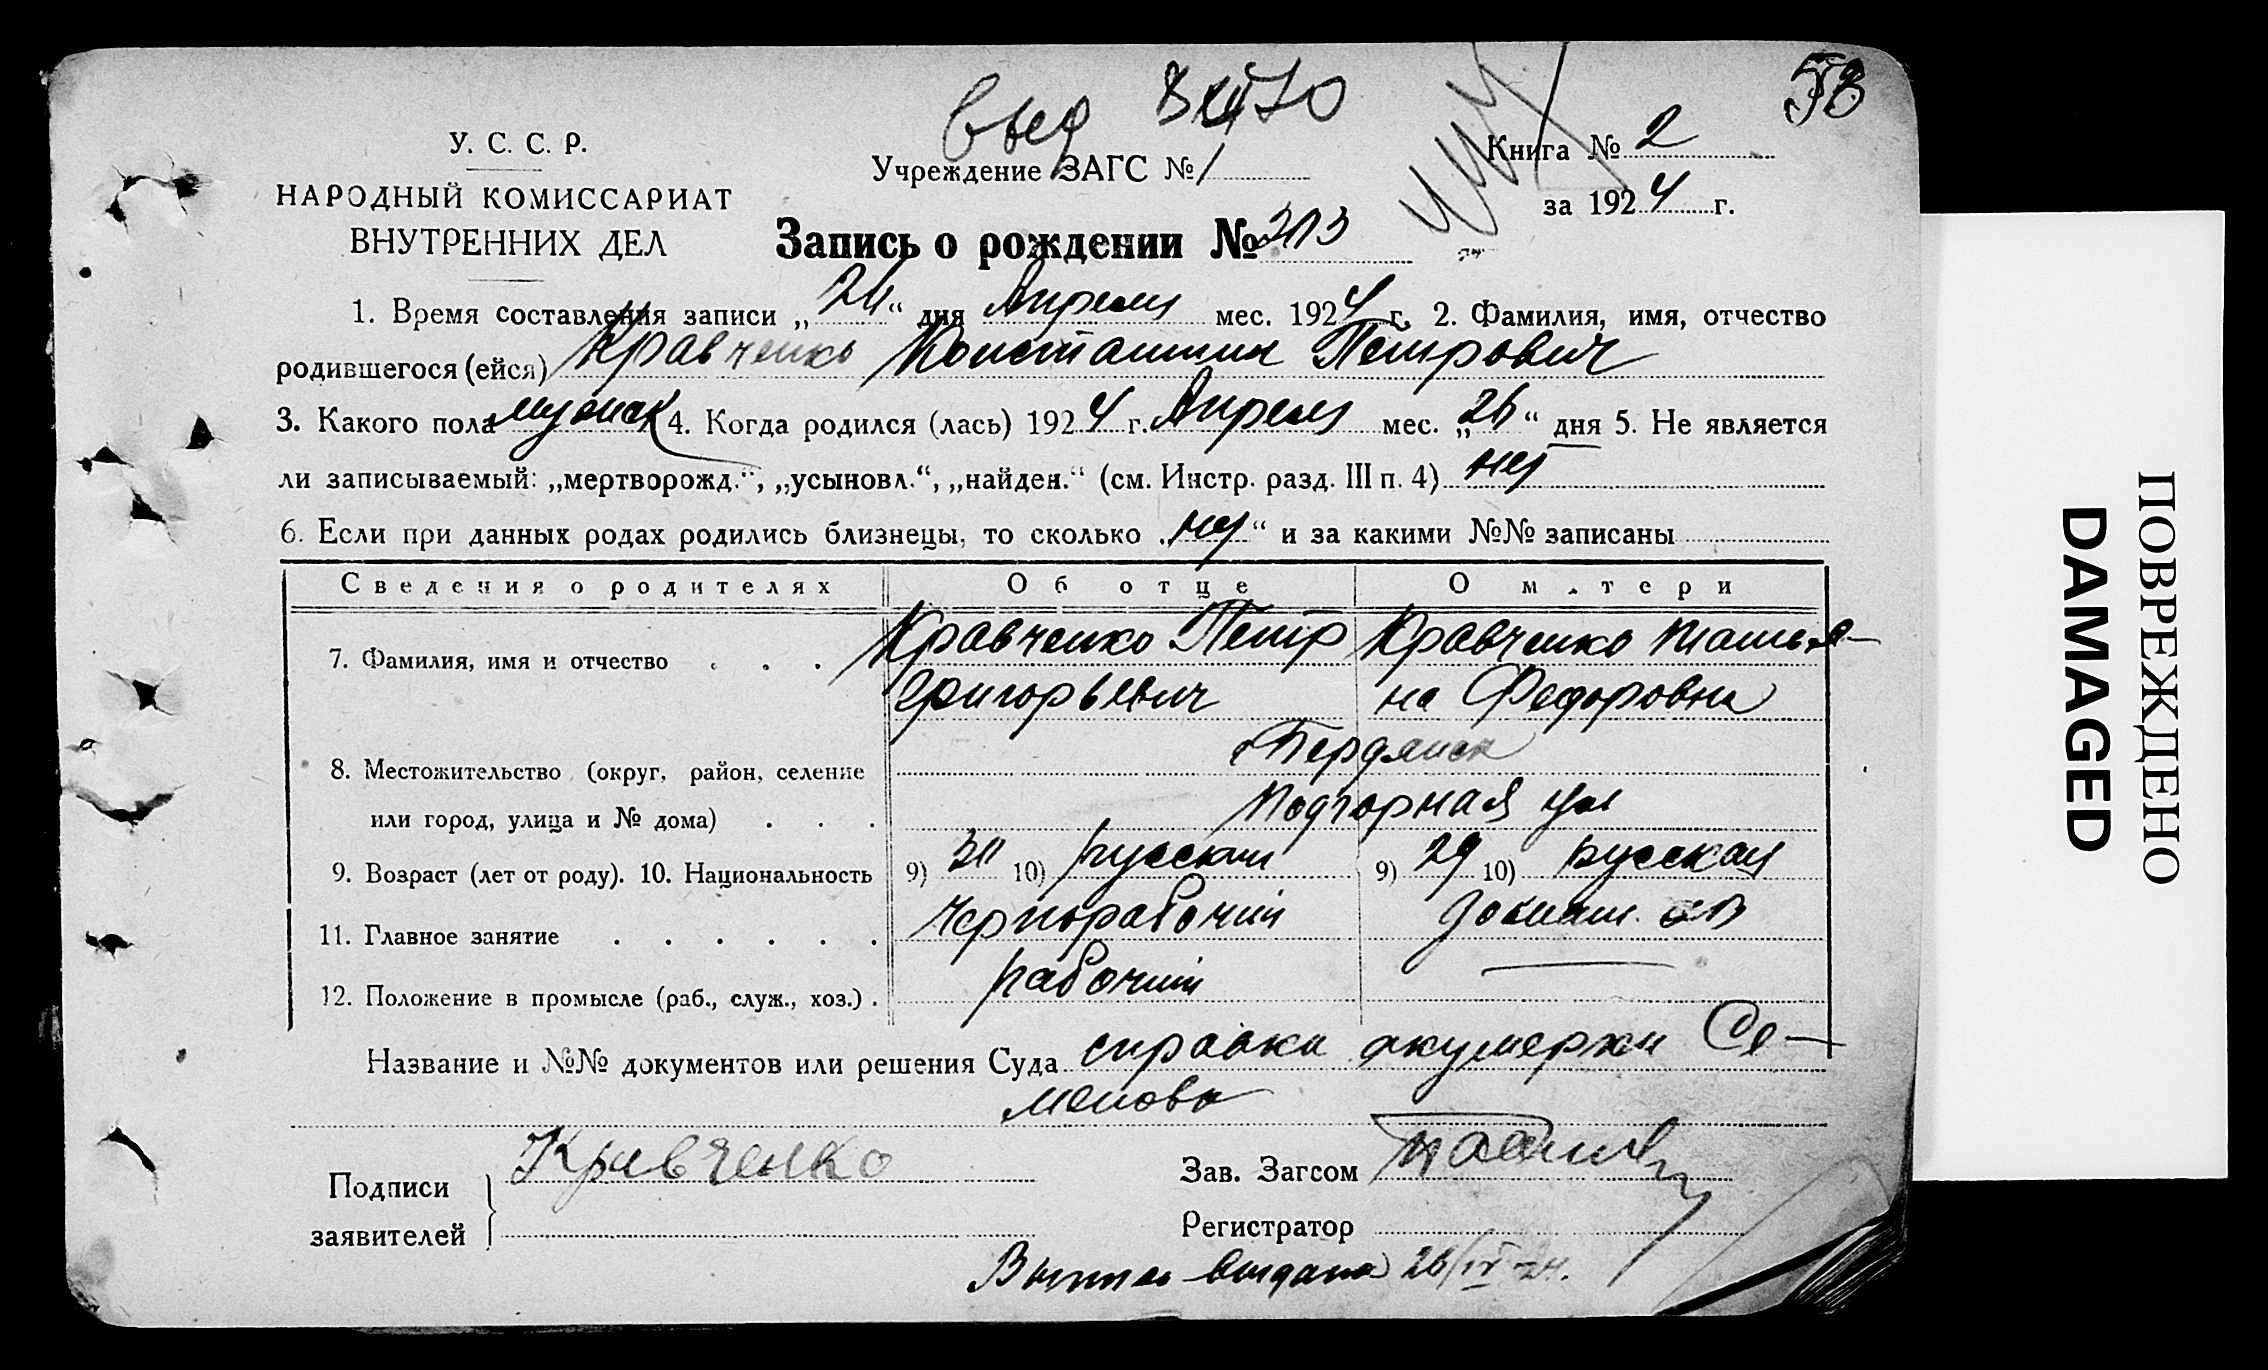 58
У. С. С. Р.
НАРОДНЫЙ КОМИССАРИАТ
ВНУТРЕННИХ ДЕЛ
Учреждение ЗАГС № 1
Книга № 2
за 1924 г.
Запись о рождении № 313
1. Время составления записи „26“ дня Апреля мес. 1924 г. 2. Фамилия, имя, отчество
родившегося (ейся) Кравченко Константин Петрович
3. Какого пола мужск 4. Когда родился (лась) 1924 г. Апреля мес. „26“ дня 5. Не является
ли записываемый: „мертворожд.“, „усыновл.“, „найден.“ (см. Инстр. разд. III п. 4) нет
6. Если при данных родах родились близнецы, то сколько „нет“ и за какими №№ записаны
Сведения о родителях Об отце О матери
7. Фамилия, имя и отчество . . . Кравченко Петр Кравченко Татья-
Григорьевич на Федоровна
8. Местожительство (округ, район, селение Бердянск
или город, улица и № дома) . . . Подгорная ул
9. Возраст (лет от роду). 10. Национальность 9) 30 10) русский 9) 29 10) русская
11. Главное занятие . . . . . . Чернорабочий домашн. хоз
12. Положение в промысле (раб., служ., хоз.) . рабочий
Название и №№ документов или решения Суда справка акушерки Се-
менова
Подписи
заявителей
Кравченко
Зав. Загсом
Регистратор
Выпись выдана 26/IV-24.
ПОВРЕЖДЕНО
DAMAGED